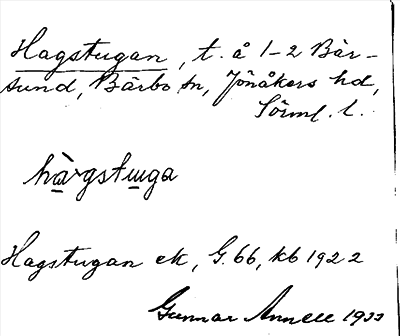 Hagstugan, t. å 1-2 Bär-
sund, Bärbo sn, Jönåkers hd,
Sörml. l.
hàgstuga
Hagstugan ek, G. 66, kb 1922
Gunnar Annell 1933